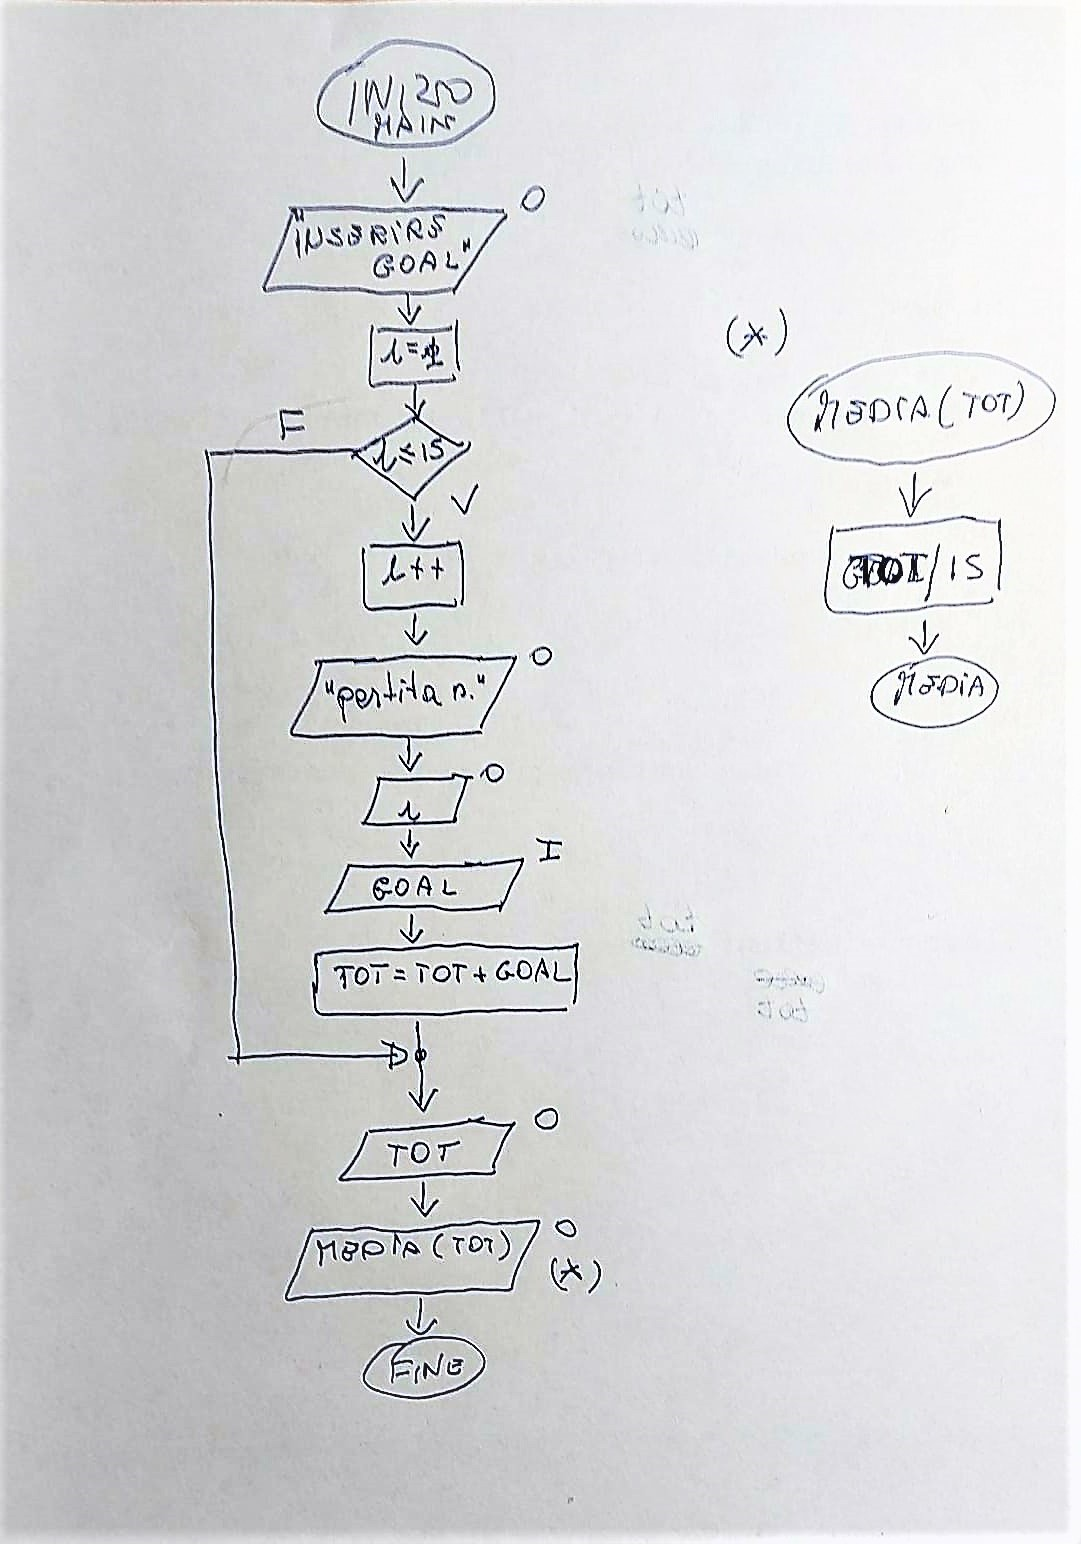 INIZIO
MAIN
O
"INSERIRE
GOAL"
F
i≤15
V
i++
"partita n."
O
i
O
GOAL
I
TOT = TOT + GOAL
TOT
O
MEDIA (TOT)
O
(*)
FINE
(*)
MEDIA (TOT)
TOT/15
MEDIA